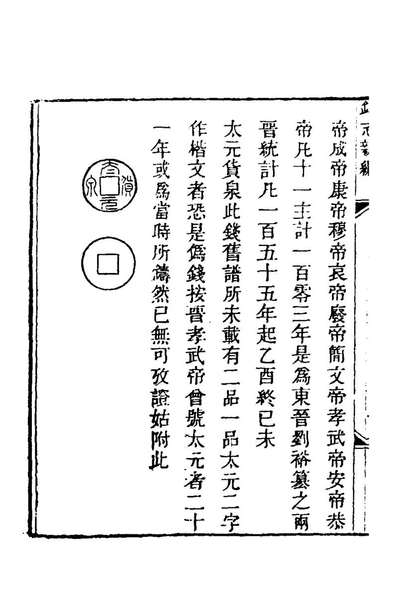 帝成帝康帝穆帝哀帝廢帝簡文帝孝武帝安帝恭
帝凡十一主計一百零三年是爲東晉劉裕簒之兩
晉統計凡一百五十五年起乙酉終己未
太元貨泉此錢舊譜所未載有二品一品太元二字
作楷文者恐是僞錢按晉孝武帝曾號太元者二十
一年或爲當時所鑄然已無可攷證姑附此
太元貨泉